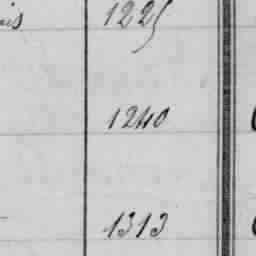 1225
1240
1313